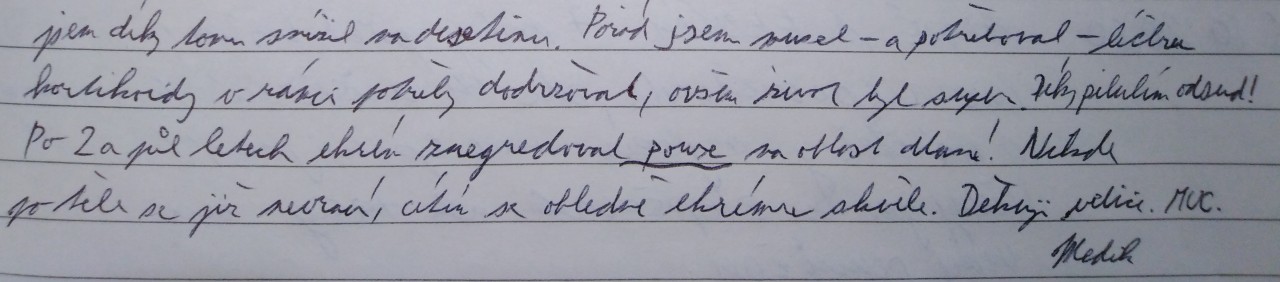 jsem díky tomu snížil na desetinu. Pořád jsem musel – a potřeboval – léčbu
kortikoidy v rámci potřeby dodržovat, ovšem život byl super. Díky pilulím odsud!
Po 2 a půl letech ekzém zregredoval pouze na oblast dlaně! Nikde
po těle se již nevrací, cítím se ohledně ekzému skvěle. Děkuji velice. MUC.
Medik